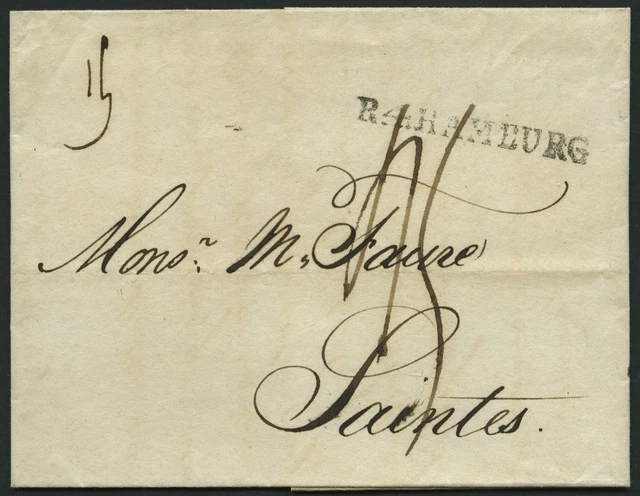 R.4.HAMBURG
Monsr. M. Faure
Saintes.